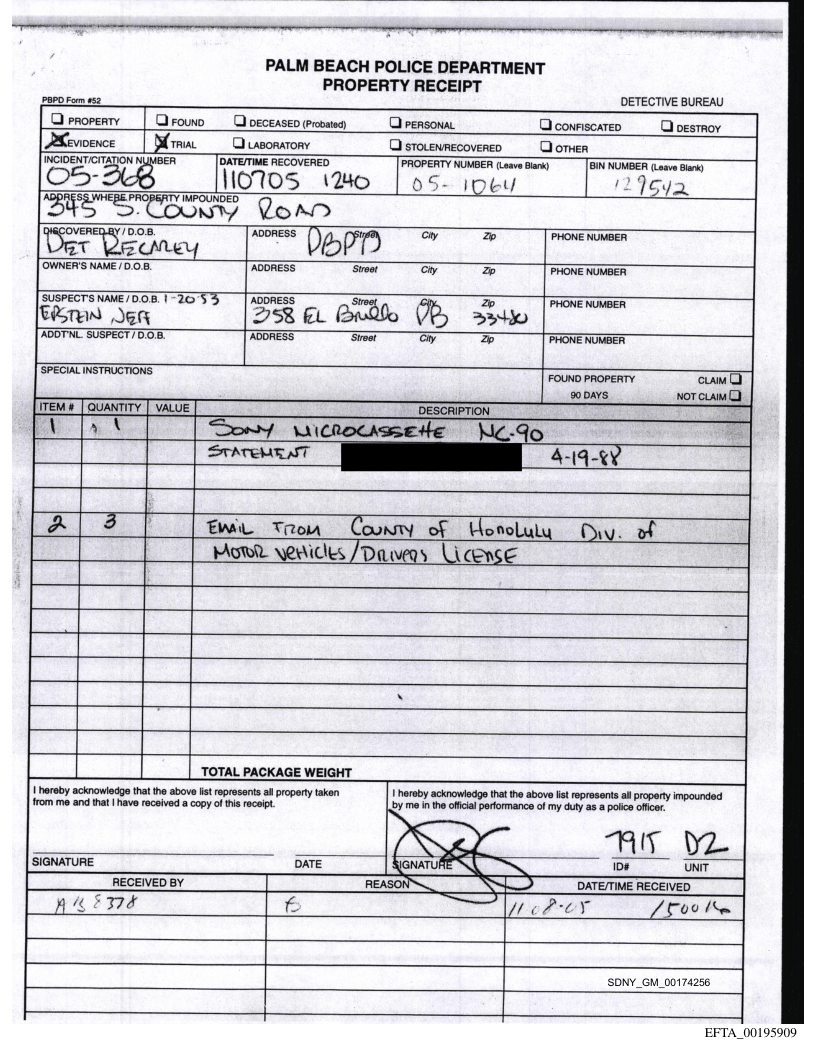 PALM BEACH POLICE DEPARTMENT
PROPERTY RECEIPT
PBPD Form #52
DETECTIVE BUREAU
PROPERTY FOUND DECEASED (Probated) PERSONAL CONFISCATED DESTROY
EVIDENCE TRIAL LABORATORY STOLEN/RECOVERED OTHER
INCIDENT/CITATION NUMBER DATE/TIME RECOVERED PROPERTY NUMBER (Leave Blank) BIN NUMBER (Leave Blank)
05-368 110705 1240 05-1064 129542
ADDRESS WHERE PROPERTY IMPOUNDED
345 S. COUNTY ROAD
DISCOVERED BY / D.O.B. ADDRESS Street City Zip PHONE NUMBER
DET RECAREY PBPD
OWNER'S NAME / D.O.B. ADDRESS Street City Zip PHONE NUMBER
SUSPECT'S NAME / D.O.B. 1-20-53 ADDRESS Street City Zip PHONE NUMBER
EPSTEIN JEFF 358 EL Brillo PB 33480
ADDT'NL. SUSPECT / D.O.B. ADDRESS Street City Zip PHONE NUMBER
SPECIAL INSTRUCTIONS
FOUND PROPERTY CLAIM
90 DAYS NOT CLAIM
ITEM # QUANTITY VALUE DESCRIPTION
1 1 SONY MICROCASSETTE MC-90
STATEMENT 4-19-88
2 3 EMAIL FROM COUNTY of Honolulu Div. of
MOTOR VEHICLES/DRIVERS LICENSE
TOTAL PACKAGE WEIGHT
I hereby acknowledge that the above list represents all property taken
from me and that I have received a copy of this receipt.
I hereby acknowledge that the above list represents all property impounded
by me in the official performance of my duty as a police officer.
7915 D2
SIGNATURE DATE SIGNATURE ID# UNIT
RECEIVED BY REASON DATE/TIME RECEIVED
8378 11-08-05
SDNY_GM_00174256
EFTA_00195909